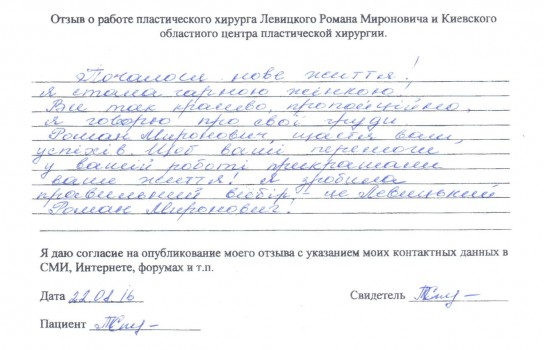 Отзыв о работе пластического хирурга Левицкого Романа Мироновича и Киевского
областного центра пластической хирургии.
Почалося нове життя!
Я стала гарною жінкою,
Все так красиво, пропорційно,
Я говорю про свої груди
Роман Миронович, щастя вам,
успіхів. Щоб ваші перемоги
у вашій роботі прикрашали
ваше життя. Я зробила
правильний вибір, це Левицький
Роман Миронович.
Я даю согласие на опубликование моего отзыва с указанием моих контактных данных в
СМИ, Интернете, форумах и т.п.
Дата 22.02.16 Свидетель
Пациент